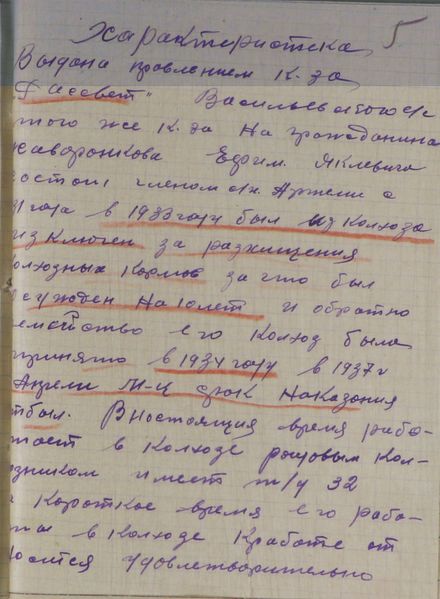 Характеристика 5
Выдана правлением к-за
"Рассвет" Васильевского с/с
того же к-за На гражданина
жаворонкова Ефрим. Яклевича
состоит членом с/х. Артели с
31 года в 1933 году был из колхоза
изключен за разхищения
колхозных кормов за что был
осужден На 10 лет и обратно
семейство его колхоз было
принято в 1934 году в 1937 г
Апрели м-ц срок Наказания
отбыл. В Ностоящия время рабо-
тает в колхозе рядовым кол-
хозником имеет т/д 32
за короткое время его рабо-
ты в колхозе к работе от
носится удовлетворительно